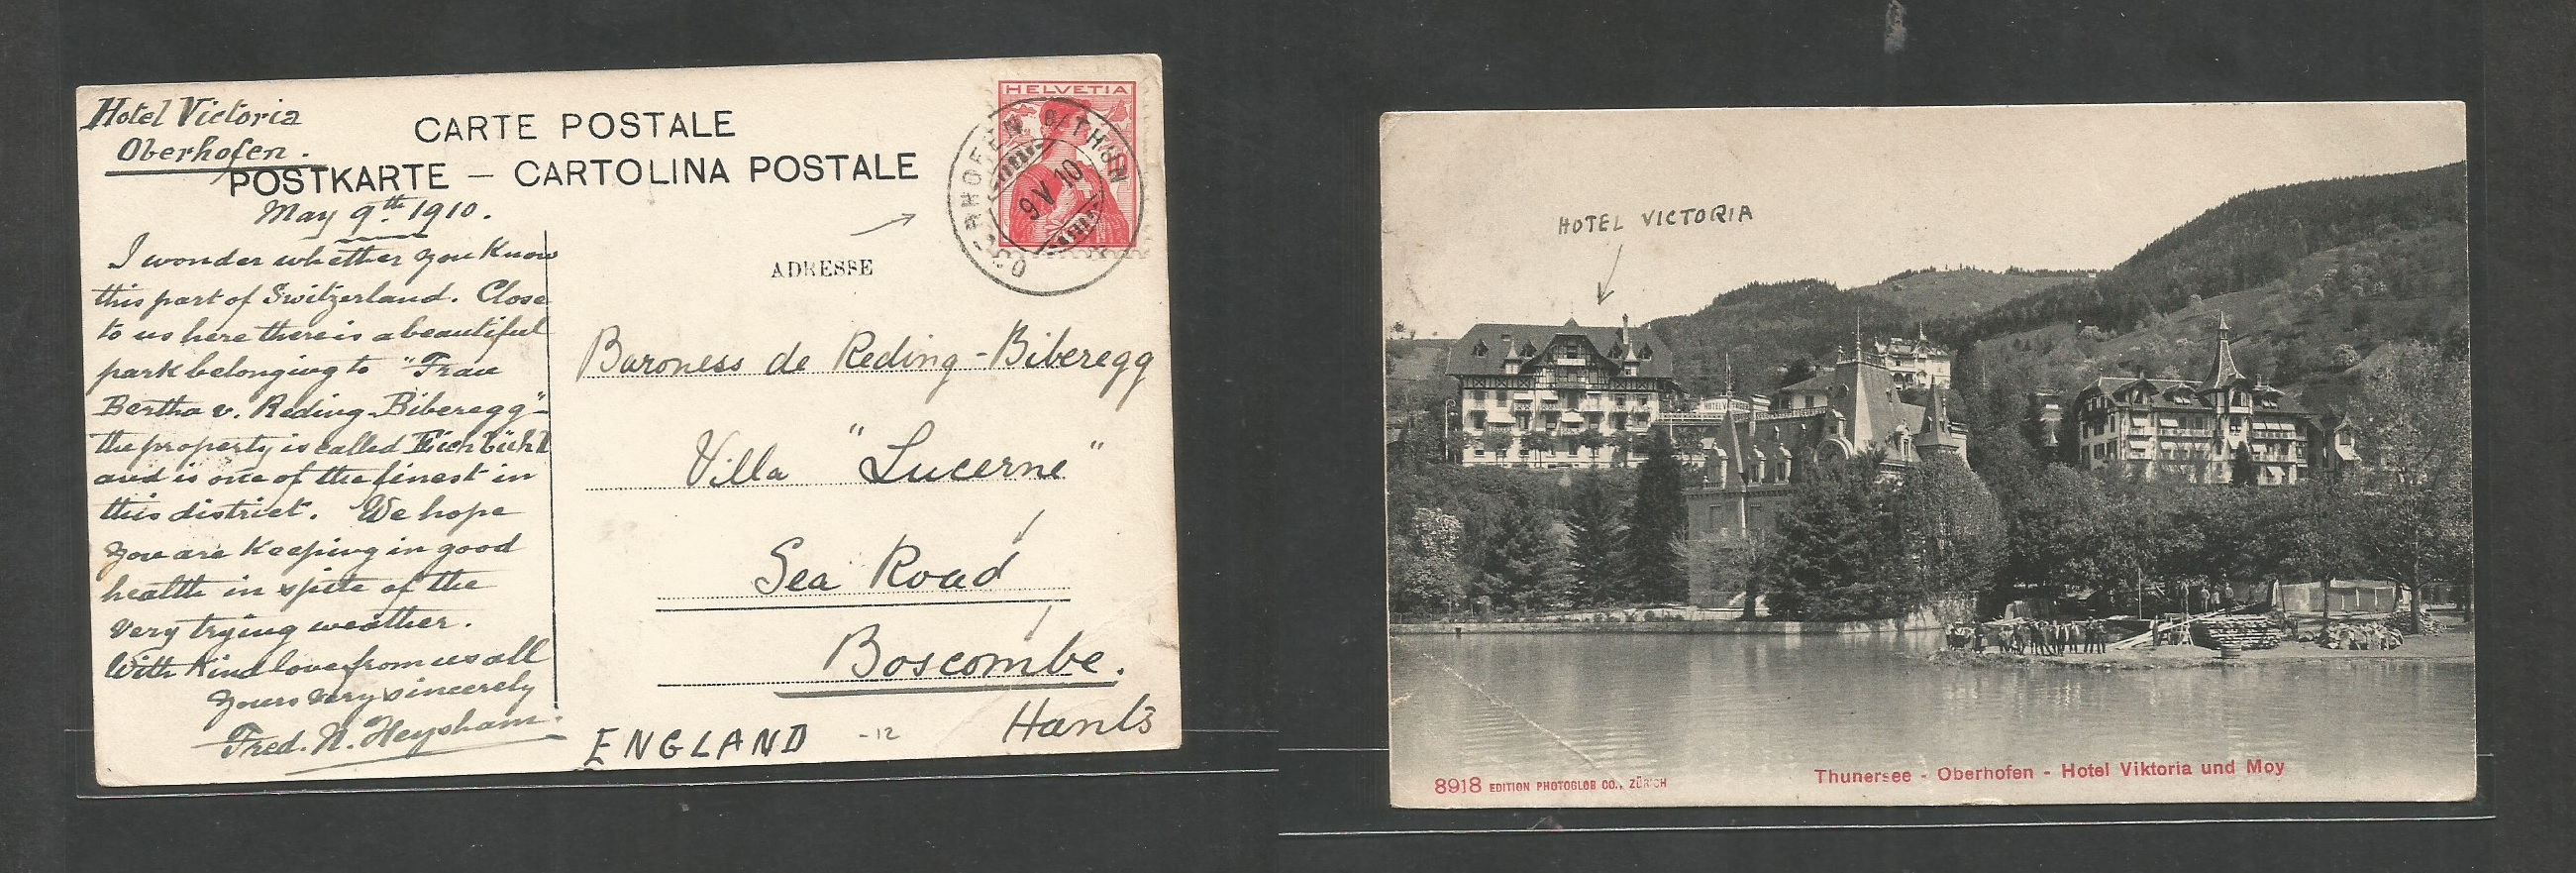 Hotel Victoria
Oberhofen.
CARTE POSTALE
POSTKARTE – CARTOLINA POSTALE
May 9th 1910.
I wonder whether you know
this part of Switzerland. Close
to us here there is a beautiful
park belonging to "Frau
Bertha v. Reding-Biberegg"-
the property is called Eichbühl
and is one of the finest in
this district. We hope
you are keeping in good
health in spite of the
very trying weather.
With kind love from us all
Yours very sincerely
Fred. N. Heysham.
HELVETIA
OBERHOFEN b/THUN
9 V 10
ADRESSE
Baroness de Reding-Biberegg
Villa "Lucerne"
Sea Road
Boscombe.
Hants
ENGLAND
-12
HOTEL VICTORIA
8918 EDITION PHOTOGLOB CO., ZÜRICH
Thunersee - Oberhofen - Hotel Viktoria und Moy